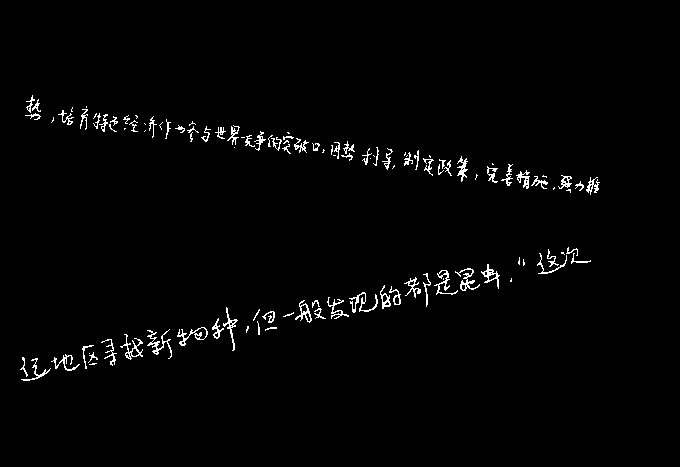 势，培育特色经济作为参与世界竞争的突破口，因势利导，制定政策，完善措施，强力推
这地区寻找新物种，但一般发现的都是昆虫。”这次